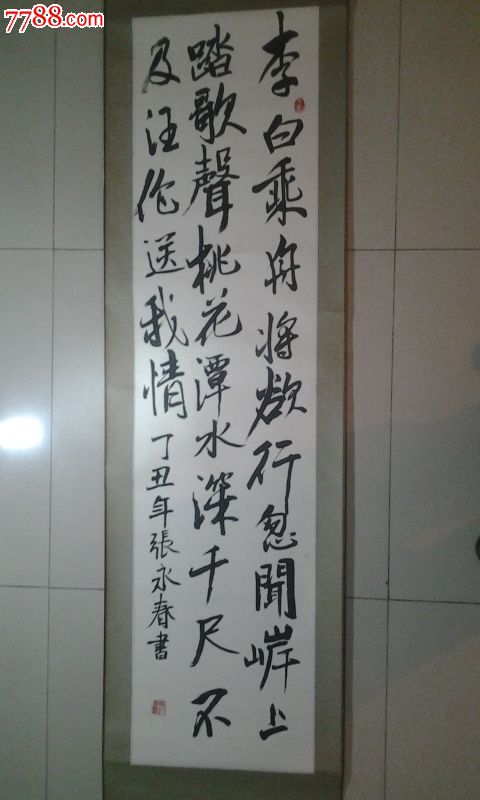 7788.com
李白乘舟将欲行忽聞岸上
踏歌聲桃花潭水深千尺不
及汪伦送我情
丁丑年張永春書